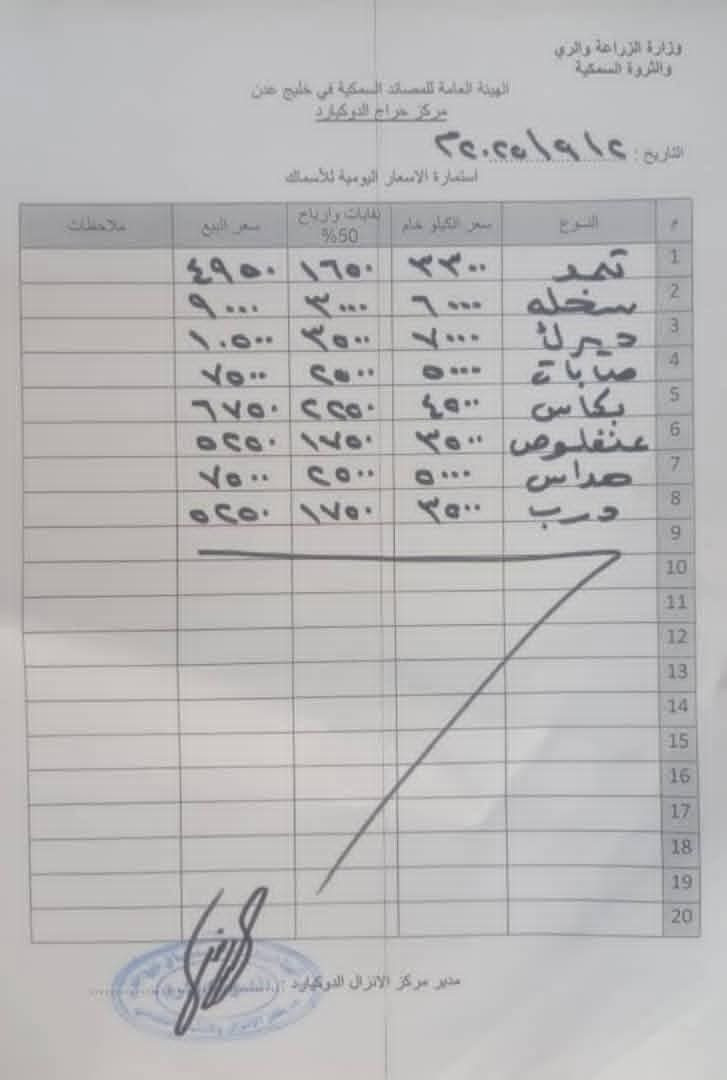 وزارة الزراعة والري
والثروة السمكية
الهيئة العامة للمصائد السمكية في خليج عدن
مركز حراج الدوكيارد
التاريخ: ٢/٩/٢٠٢٥م
استمارة الاسعار اليومية للأسماك
# النوع سعر الكيلو خام نفايات وارباح 50% سعر البيع ملاحظات
1 ثمد ٣٣٠٠ ١٦٥٠ ٤٩٥٠
2 سخله ٦٠٠٠ ٣٠٠٠ ٩٠٠٠
3 ديرك ٧٠٠٠ ٣٥٠٠ ١٠٥٠٠
4 ٥٠٠٠ ٢٥٠٠ ٧٥٠٠
5 بكاس ٤٥٠٠ ٢٢٥٠ ٦٧٥٠
6 عنفلوص ٣٥٠٠ ١٧٥٠ ٥٢٥٠
7 هداس ٥٠٠٠ ٢٥٠٠ ٧٥٠٠
8 درب ٣٥٠٠ ١٧٥٠ ٥٢٥٠
9
10
11
12
13
14
15
16
17
18
19
20
مدير مركز الانزال الدوكيارد :